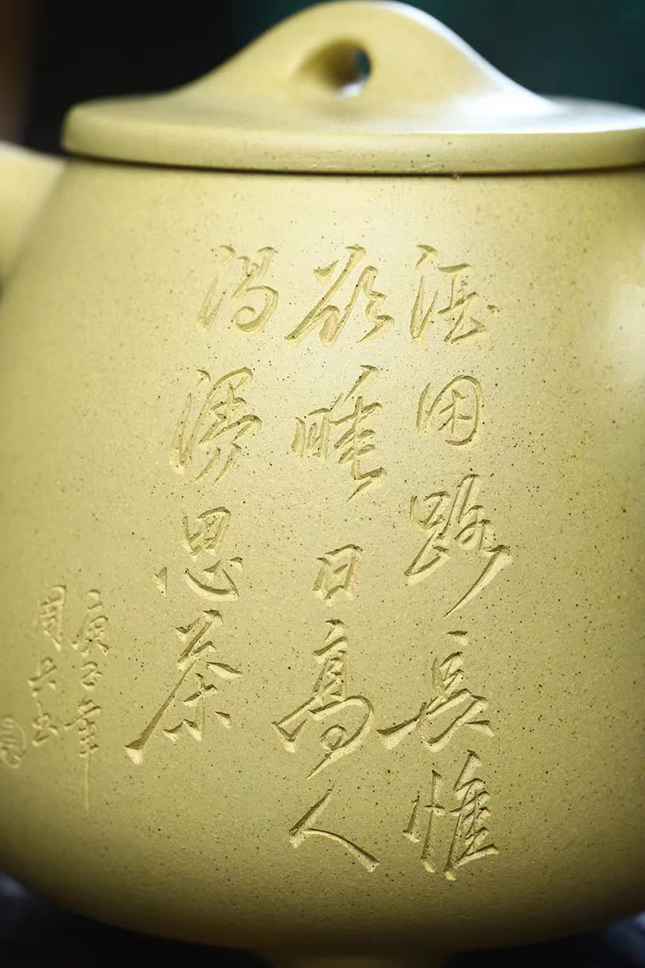 酒困路長惟
欲睡日高人
渴漫思茶
庚子年
周